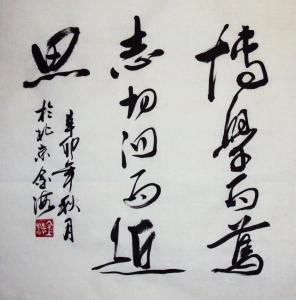 博學而篤
志切问而近
思
辛卯年秋月
於北京金海